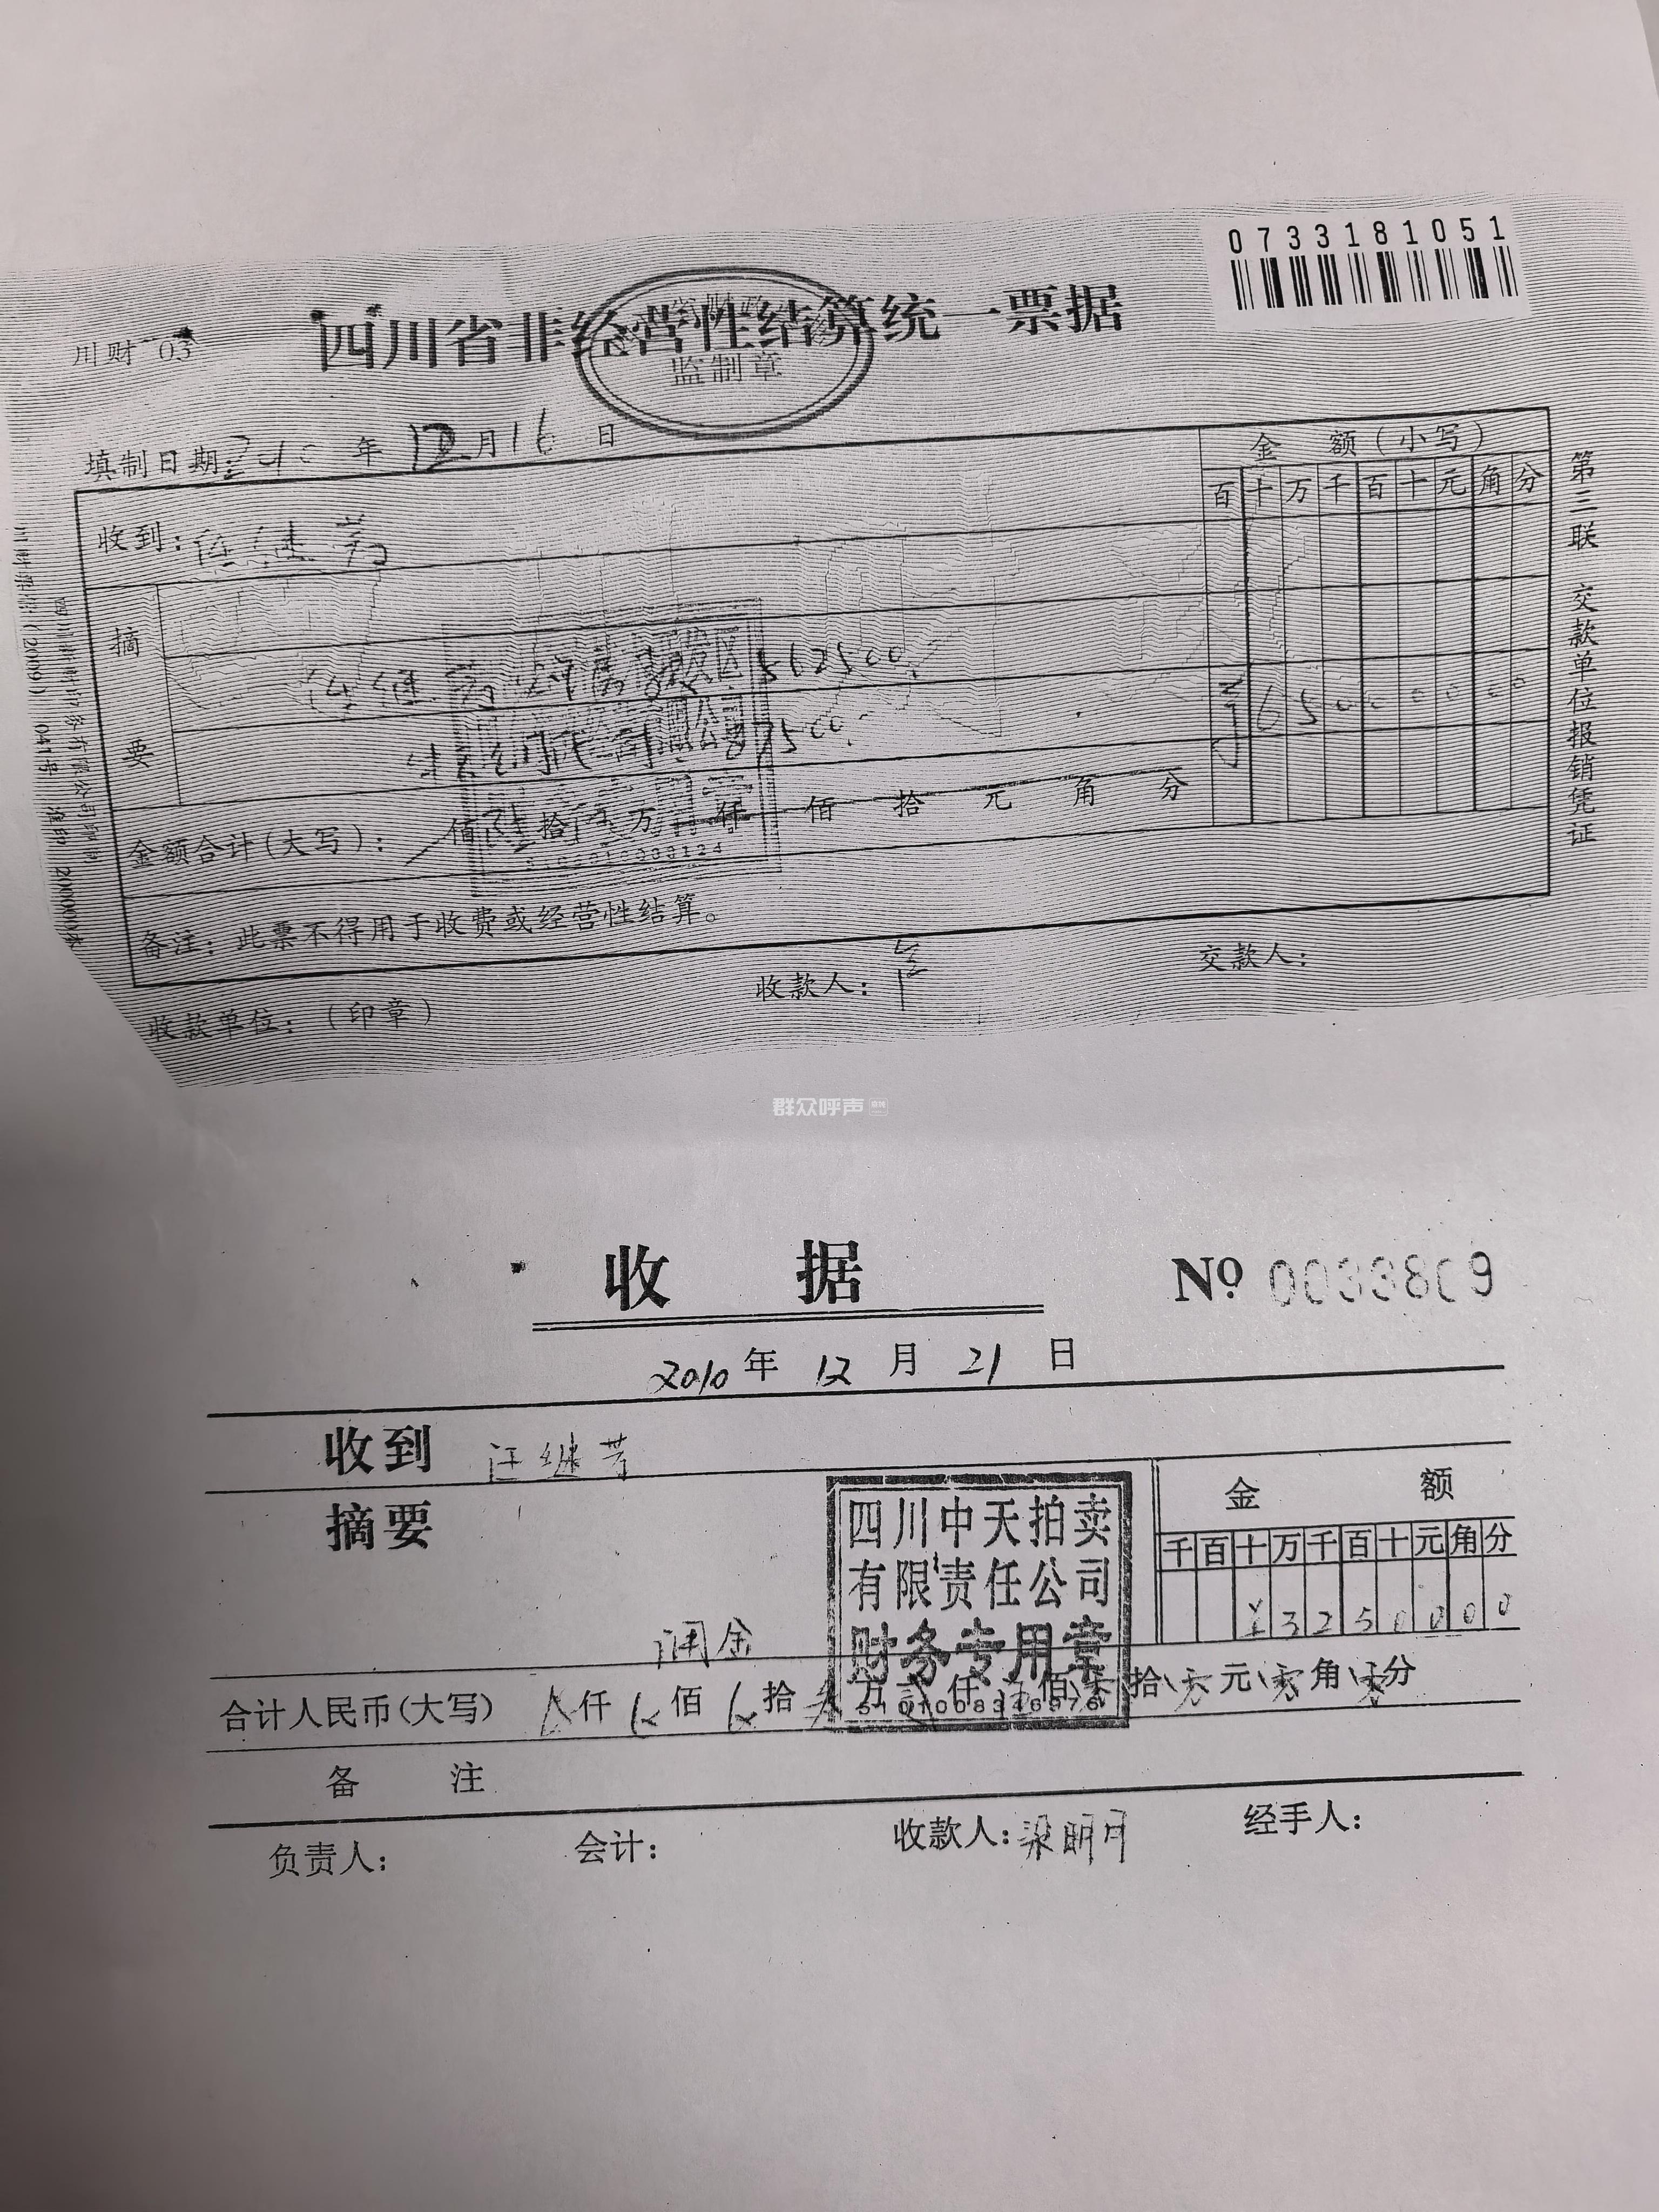 0733181051
川财 03
四川省非经营性结算统一票据
监制章
填制日期 年 12月16日
金额(小写)
百十万千百十元角分
收到:汪继芳
摘要
汪继芳 562500
87500
6500000
金额合计(大写): 佰 拾 万 仟 佰 拾 元 角 分
备注:此票不得用于收费或经营性结算。
收款单位:(印章)
收款人:
交款人:
第三联 交款单位报销凭证
群众呼声
收据
No 0033809
2010年12月21日
收到 汪继芳
摘要
佣金
四川中天拍卖
有限责任公司
财务专用章
金额
千百十万千百十元角分
¥3250000
合计人民币(大写) 仟 佰 拾 万 仟 佰 拾 元 角 分
备注
负责人:
会计:
收款人:梁明月
经手人: